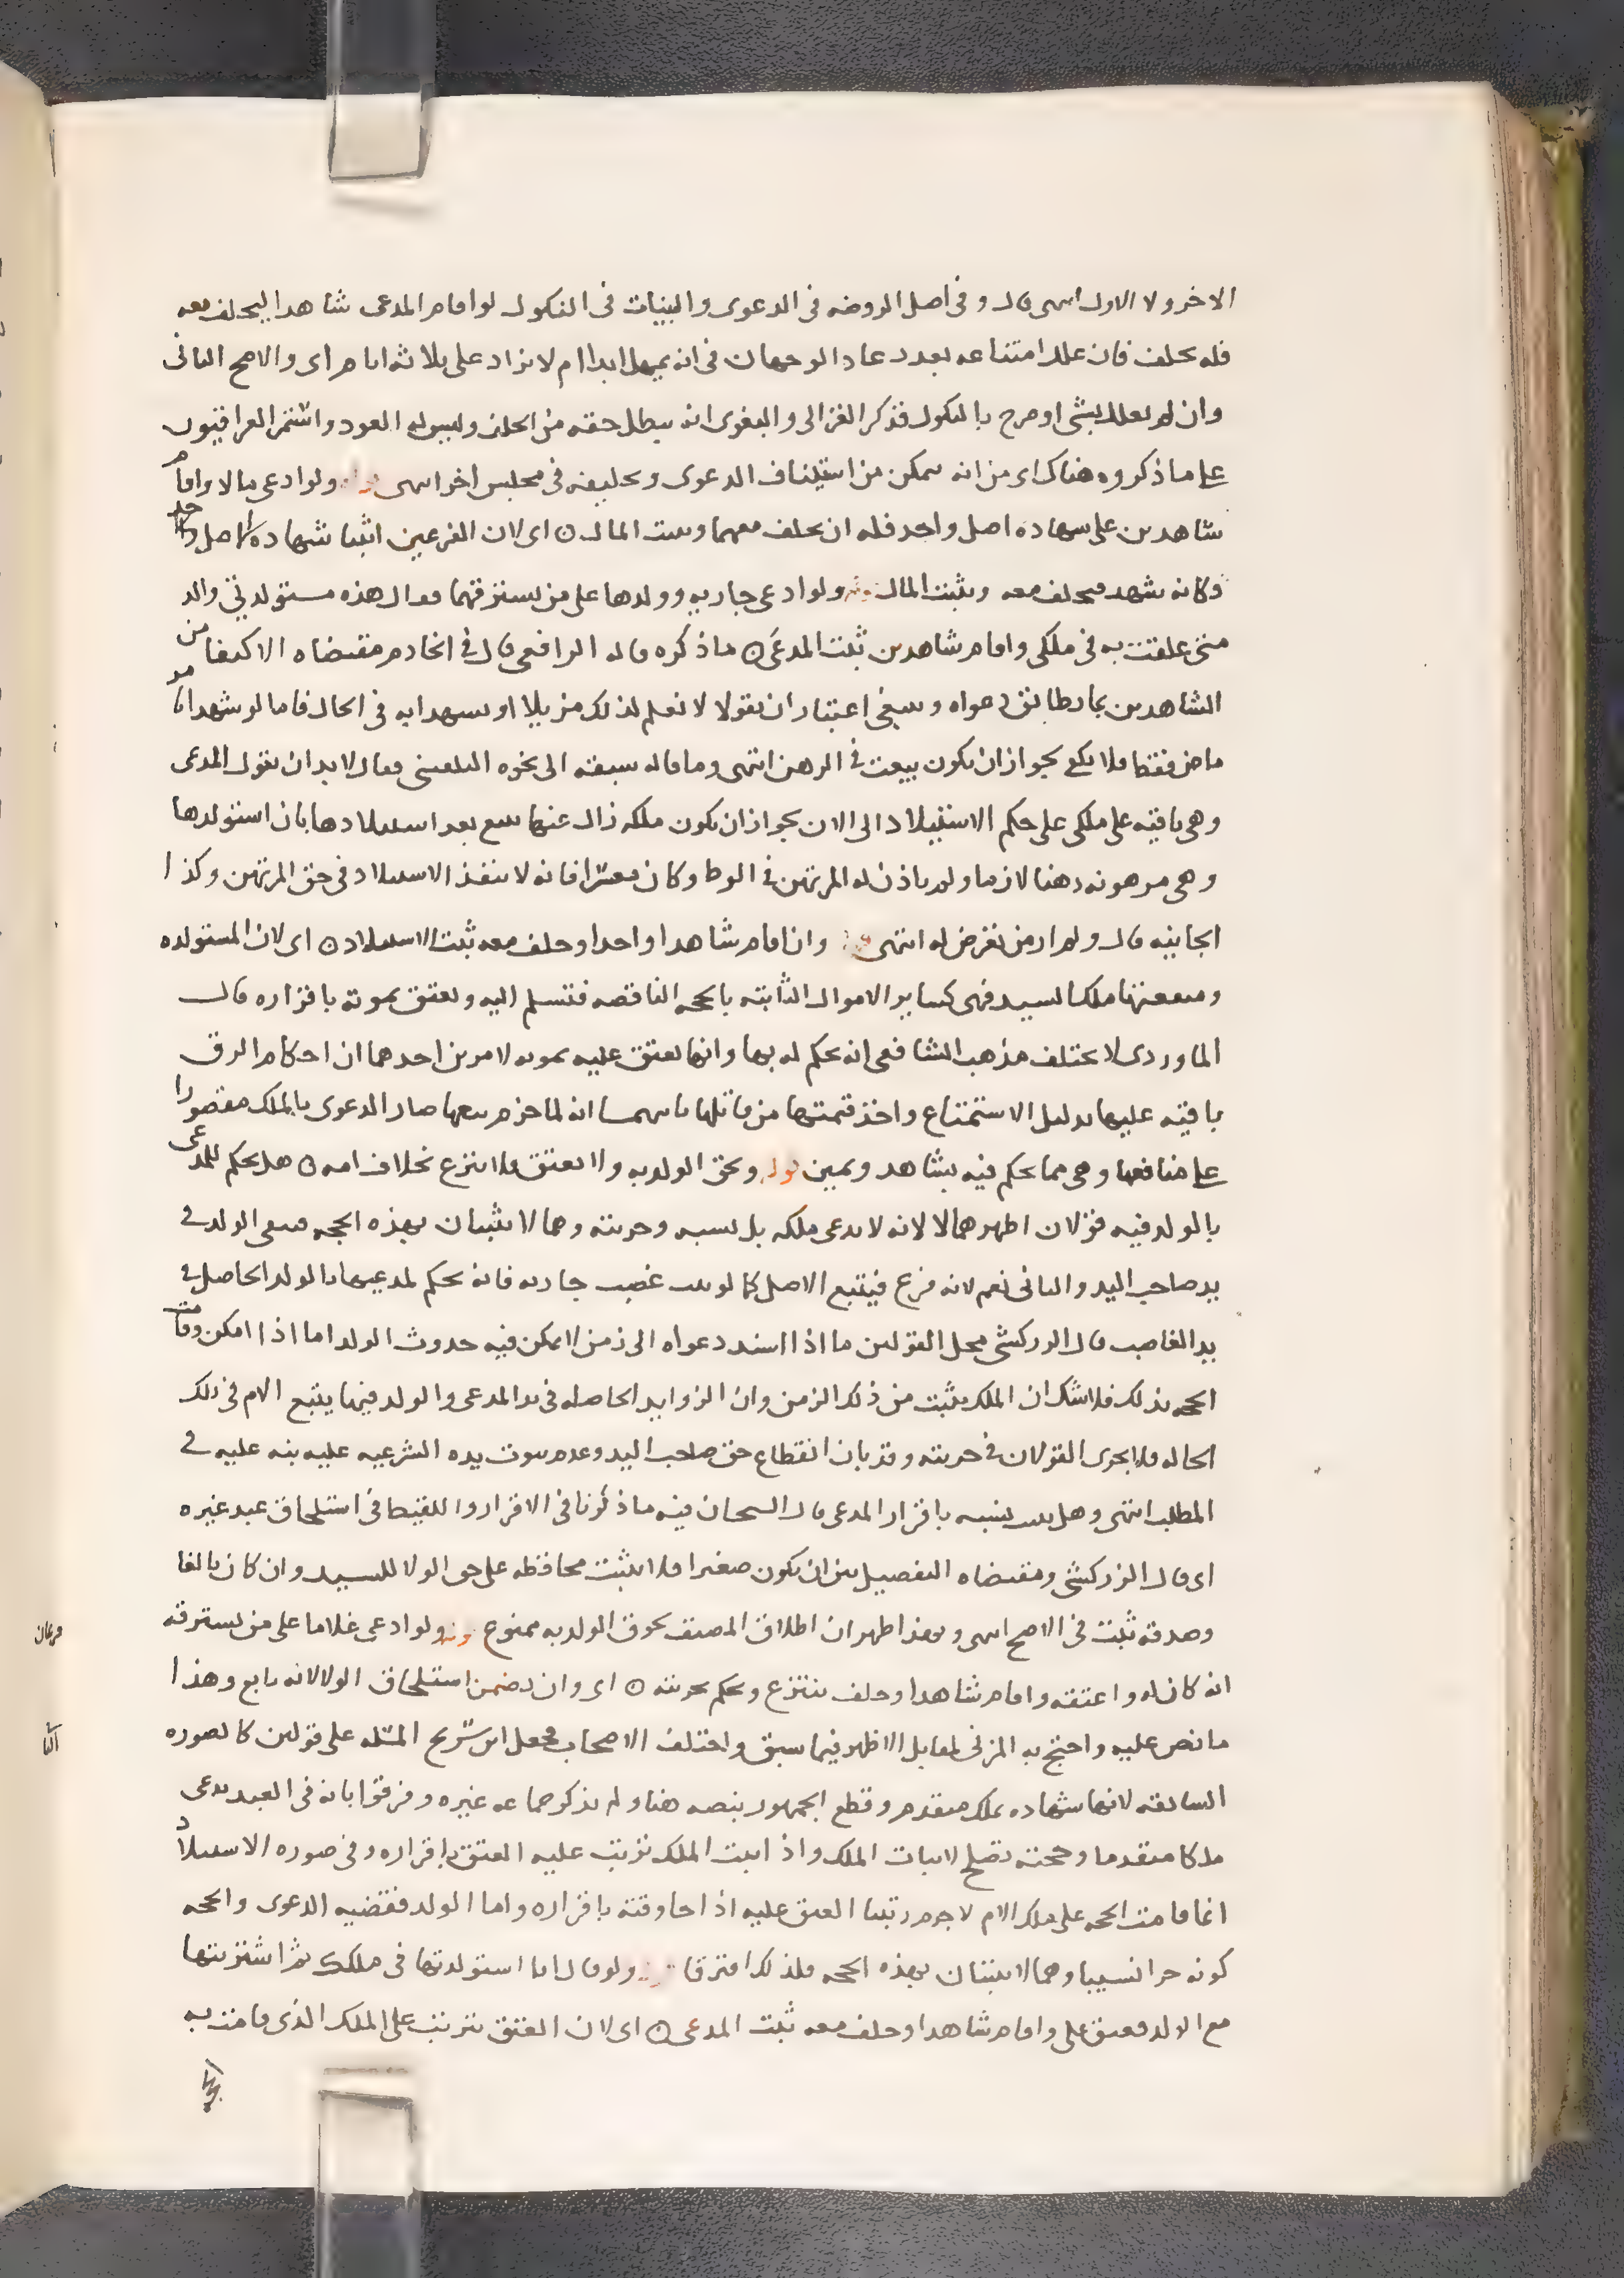 الاخر ولا الاول انتهى قال وفى اصل الروضه فى الدعوى والبينات فى النكول لو اقام المدعى شاهدا ليحلف معه
فلم يحلف فان علل امتناعه بعدر عاد الوجهان فى انه يمهل ابدا ام لا يزاد على ثلاثه ايام اى والاصح الثانى
وان لم يعلل بشى او صرح بالنكول فذكر الغزالى والبغوى انه يبطل حقه من الحلف وليس له العود واستمر العراقيون
على ما ذكروه هناك اى من انه يتمكن من استيناف الدعوى وتحليفه فى مجلس اخر انتهى ولو ادعى مالا واقام
شاهدين على شهاده اصل واحد فله ان يحلف معهما ويثبت المال ن اى لان الفرعين اثبتا شهاده الاصل واحد
وكانه شهد فيحلف معه ويثبت المال ولو ادعى جاريه وولدها على من يسترقهما فقال هذه مستولدتى والد
منى علقت به فى ملكى واقام شاهدين ثبت المدعى ن ما ذكره قاله الرافعى قال فى الخادم مقتضاه الاكتفا من
الشاهدين بما يطابق دعواه وينبغى اعتبار ان يقولا لا نعلم لذلك مزيلا او يشهدا به فى الحال فاما لو شهدا بامر
ماض فقط فلا يكفى لجواز ان تكون بيعت فى الرهن انتهى وما قاله سبقه الى نحوه البلقينى فقال لا بد ان يقول المدعى
وهى باقيه على ملكى على حكم الاستيلاد الى الان لجواز ان يكون ملكه زال عنها ببيع بعد استيلادها بان استولدها
وهى مرهونه رهنا لازما ولم ياذن له المرتهن فى الوط وكان معسرا فانه لا ينفذ الاستيلاد فى حق المرتهن وكذا
الجانيه قال ولم ار من تعرض له انتهى وان اقام شاهدا واحدا وحلف معه ثبت الاستيلاد ن اى لان المستولده
ومنفعتها ملك السيد فهى كساير الاموال الثابته بالحجه الناقصه فتسلم اليه وتعتق بموته باقراره قال
الماوردى لا يختلف مذهب الشافعى انه يحكم له بها وانها تعتق عليه بموته لامرين احدهما ان احكام الرق
باقيه عليها بدليل الاستمتاع واخذ قيمتها من قاتلها ثانيهما انه لما حرم بيعها صار الدعوى بالملك مقصورا
على منافعها وهى مما يحكم فيه بشاهد ويمين قوله وبحق الولديه ولا يعتق فلا ينزع بخلاف امه ن هل يحكم للمدعى
بالولد فيه قولان اظهرهما لا لانه لا يدعى ملكه بل نسبه وحريته وهما لا يثبتان بهذه الحجه فيبقى الولد فى
يد صاحب اليد والثانى نعم لانه فرع فيتبع الاصل كما لو ثبت غصب جاريه فانه يحكم لمدعيها بالولد الحاصل فى
يد الغاصب قال الزركشى محل القولين ما اذا اسند دعواه الى زمن لا يمكن فيه حدوث الولد اما اذا امكن وقامت
الحجه بذلك فلا شك ان الملك يثبت من ذلك الزمن وان الزوايد الحاصله فى يد المدعى والولد فيها يتبع الام فى تلك
الحاله فلا يجرى القولان فى حريته وقد بان انقطاع حق صاحب اليد وعدم ثبوت يده الشرعيه عليه نبه عليه فى
المطلب انتهى وهل يثبت نسبه باقرار المدعى قال الشيخان فيه ما ذكرنا فى الاقرار واللقيط فى استلحاق عبد غيره
اى قال الزركشى ومقتضاه التفصيل بين ان يكون صغيرا فلا يثبت محافظه على حق الولا للسيد وان كان بالغا
وصدقه ثبت فى الاصح انتهى وبهذا ظهر ان اطلاق المصنف لحوق الولد به ممنوع قوله ولو ادعى غلاما على من يسترقه
انه كان له واعتقه واقام شاهدا وحلف ينتزع ويحكم بحريته ن اى وان تضمن استلحاق الولا لانه تابع وهذا
ما نص عليه واحتج به المزنى لمقابل الاظهر فيما سبق واختلف الاصحاب فجعل ابن سريج المسله على قولين كالصوره
السابقه لانها شهاده بملك متقدم وقطع الجمهور بنصه هنا ولم يذكر جماعه غيره وفرقوا بانه فى العبد يدعى
ملكا متقدما وحجته تصلح لاثبات الملك واذا ثبت الملك ترتب عليه العتق باقراره وفى صوره الاستيلاد
انما قامت الحجه على ملك الام لا جرم رتبنا العتق عليه اذا جا وقته باقراره واما الولد فقضيه الدعوى والحجه
كونه حرا نسيبا وهما لا يثبتان بهذه الحجه فلذلك افترقا ولو قال انا استولدتها فى ملكك ثم اشتريتها
مع الولد فعتق على واقام شاهدا وحلف معه ثبت المدعى ن اى لان العتق يترتب على الملك الذى قامت به
فرعان